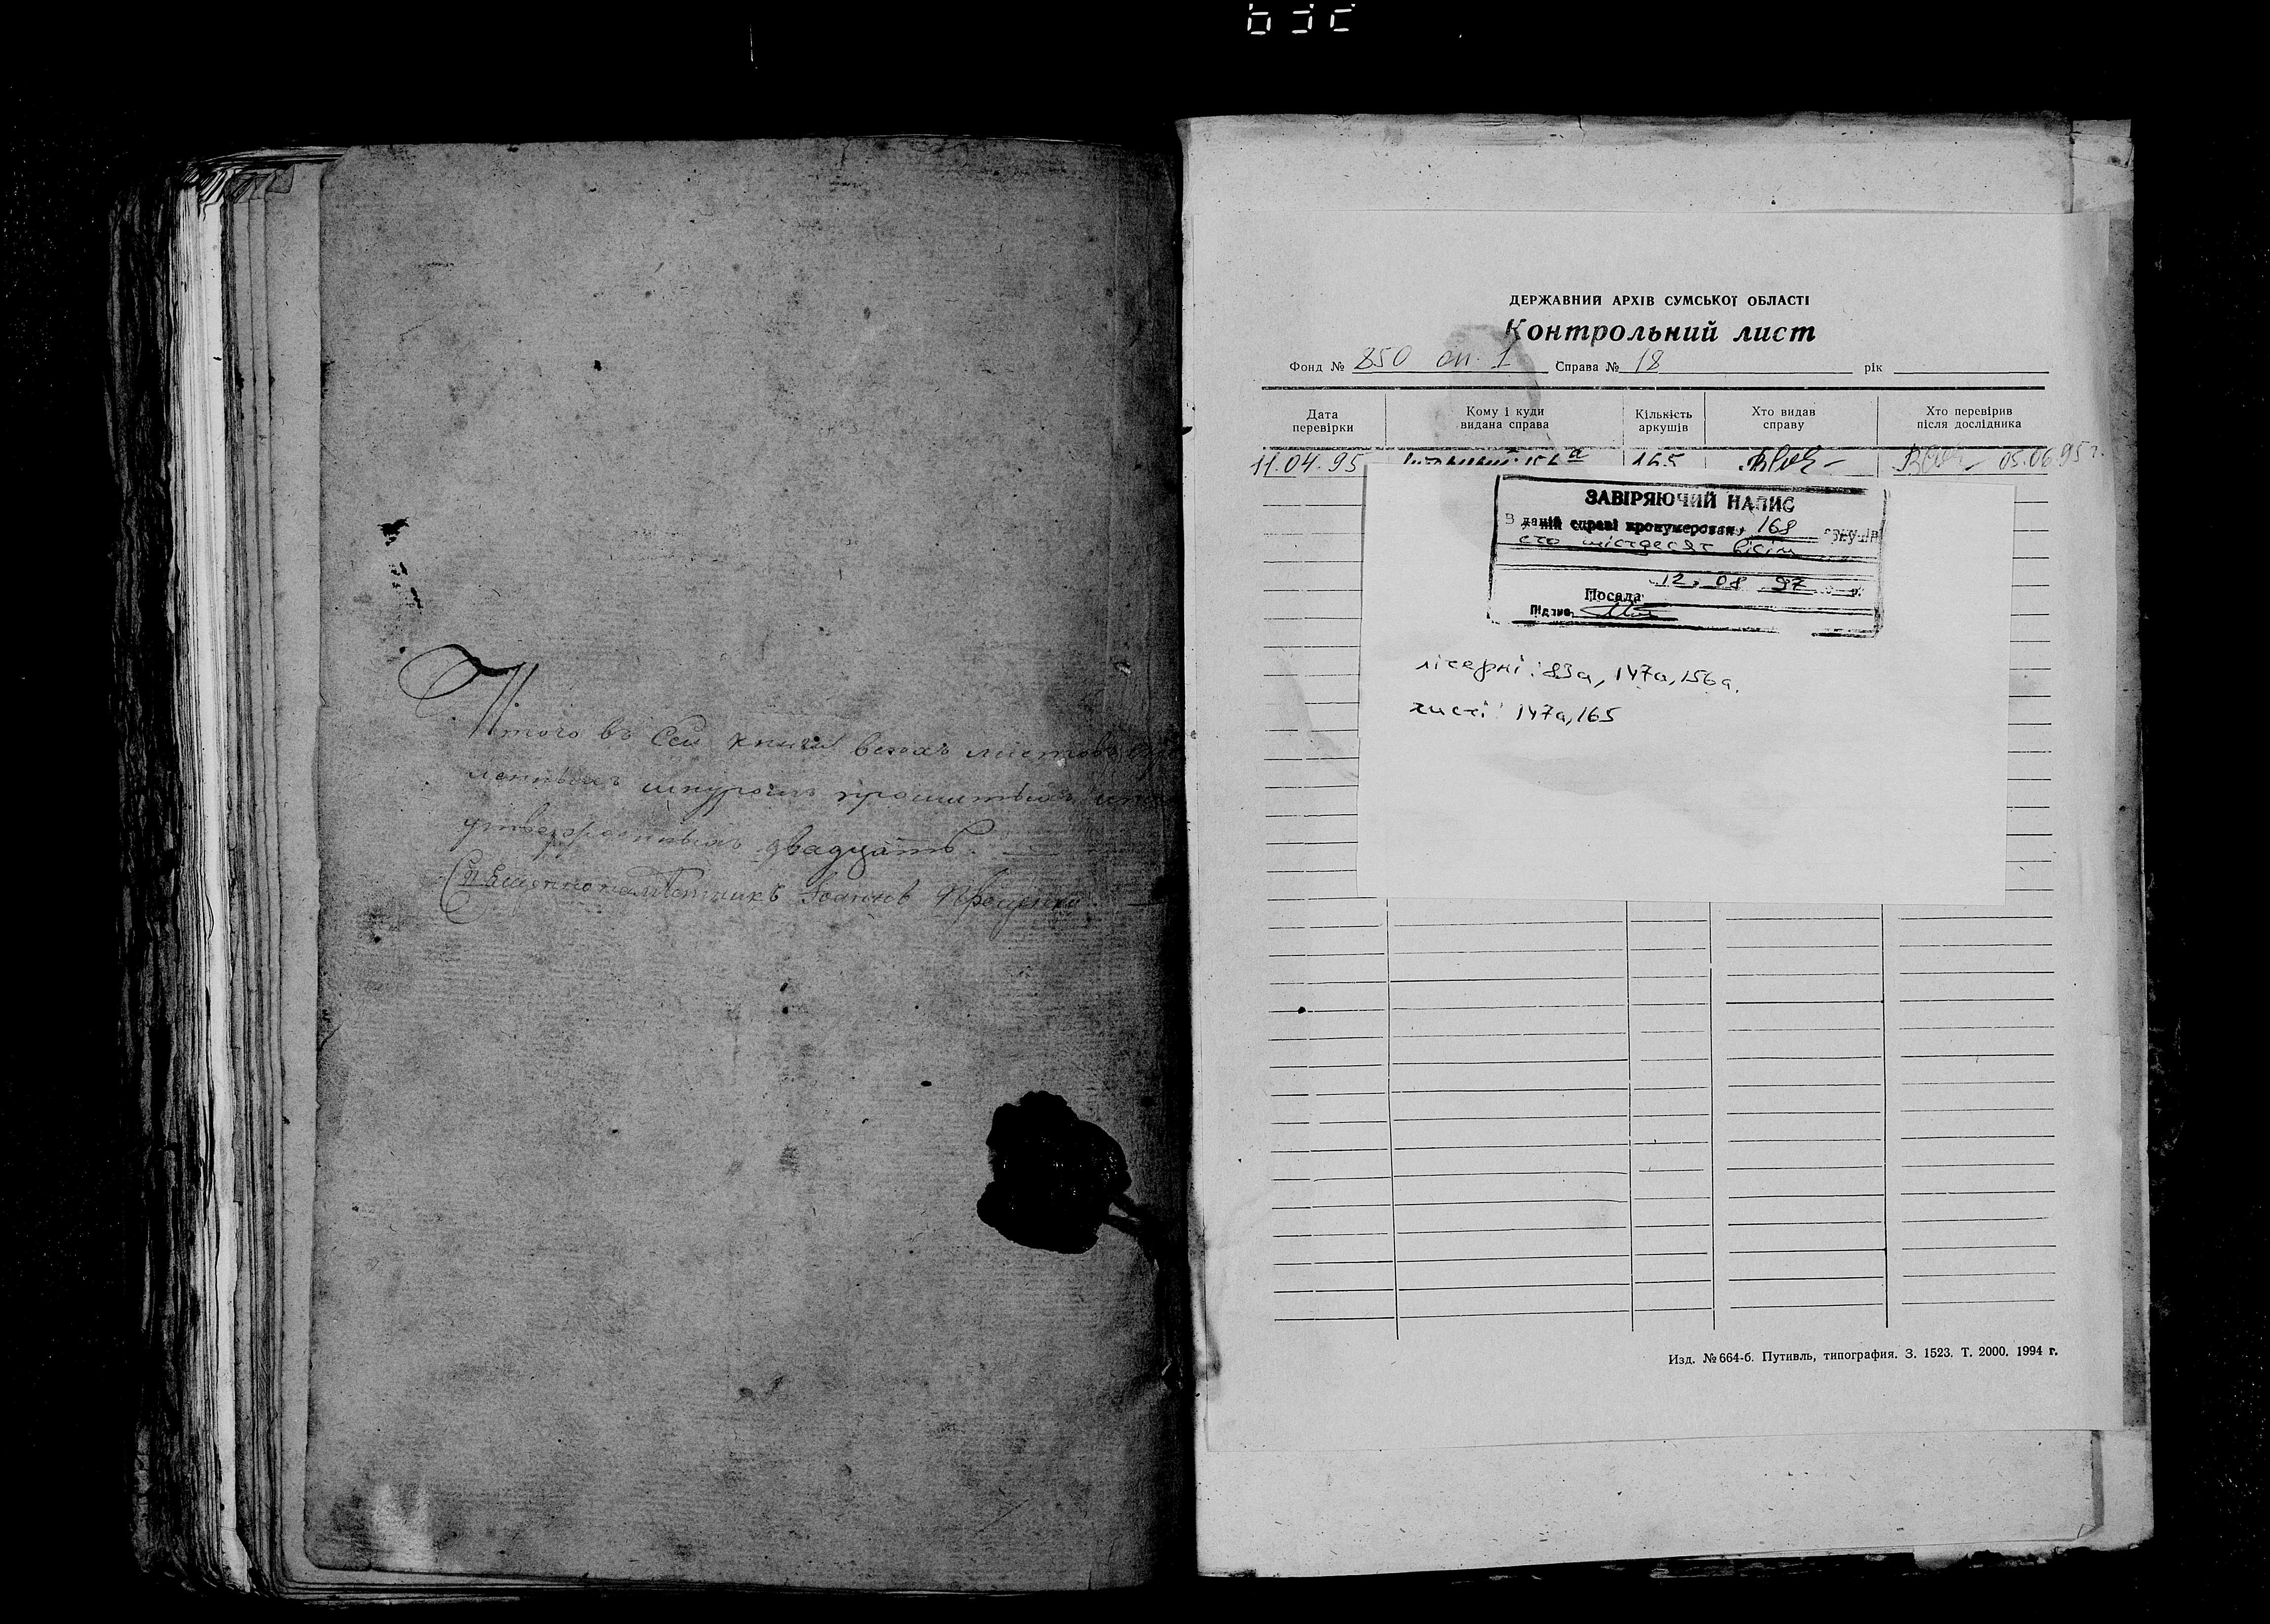 Итого въ Сеи книги всехъ листовъ
шнуромъ прошитыхъ
двадцать.
Іоаннъ
ДЕРЖАВНИЙ АРХІВ СУМСЬКОЇ ОБЛАСТІ
Контрольний лист
Фонд № 850 оп. 1 Справа № 18 рік
Дата перевірки
Кому і куди видана справа
Кількість аркушів
Хто видав справу
Хто перевірив після дослідника
11.04.95 165 05.06.95 г.
ЗАВІРЯЮЧИЙ НАПИС
В даній справі пронумеровано 168 аркушів
сто шістдесят вісім
12. 08 97 р.
Посада
Підпис
літерні: 83а, 147а, 156а.
чисті: 147а, 165
Изд. № 664-б. Путивль, типография. З. 1523. Т. 2000. 1994 г.